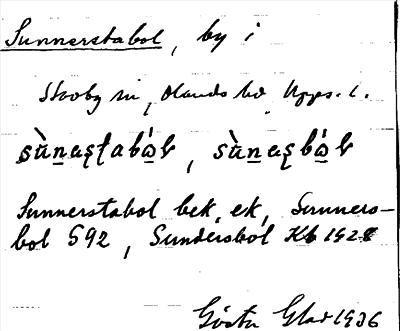 Sunnerstabol, by i
Skoby sn, Olands hd Upps. l.
sùnastabɷ́l, sùnasbɷ́l
Sunnerstabol bek, ek, Sunners-
bol 592, Sundersbol Kb 1928
Gösta Glad 1936